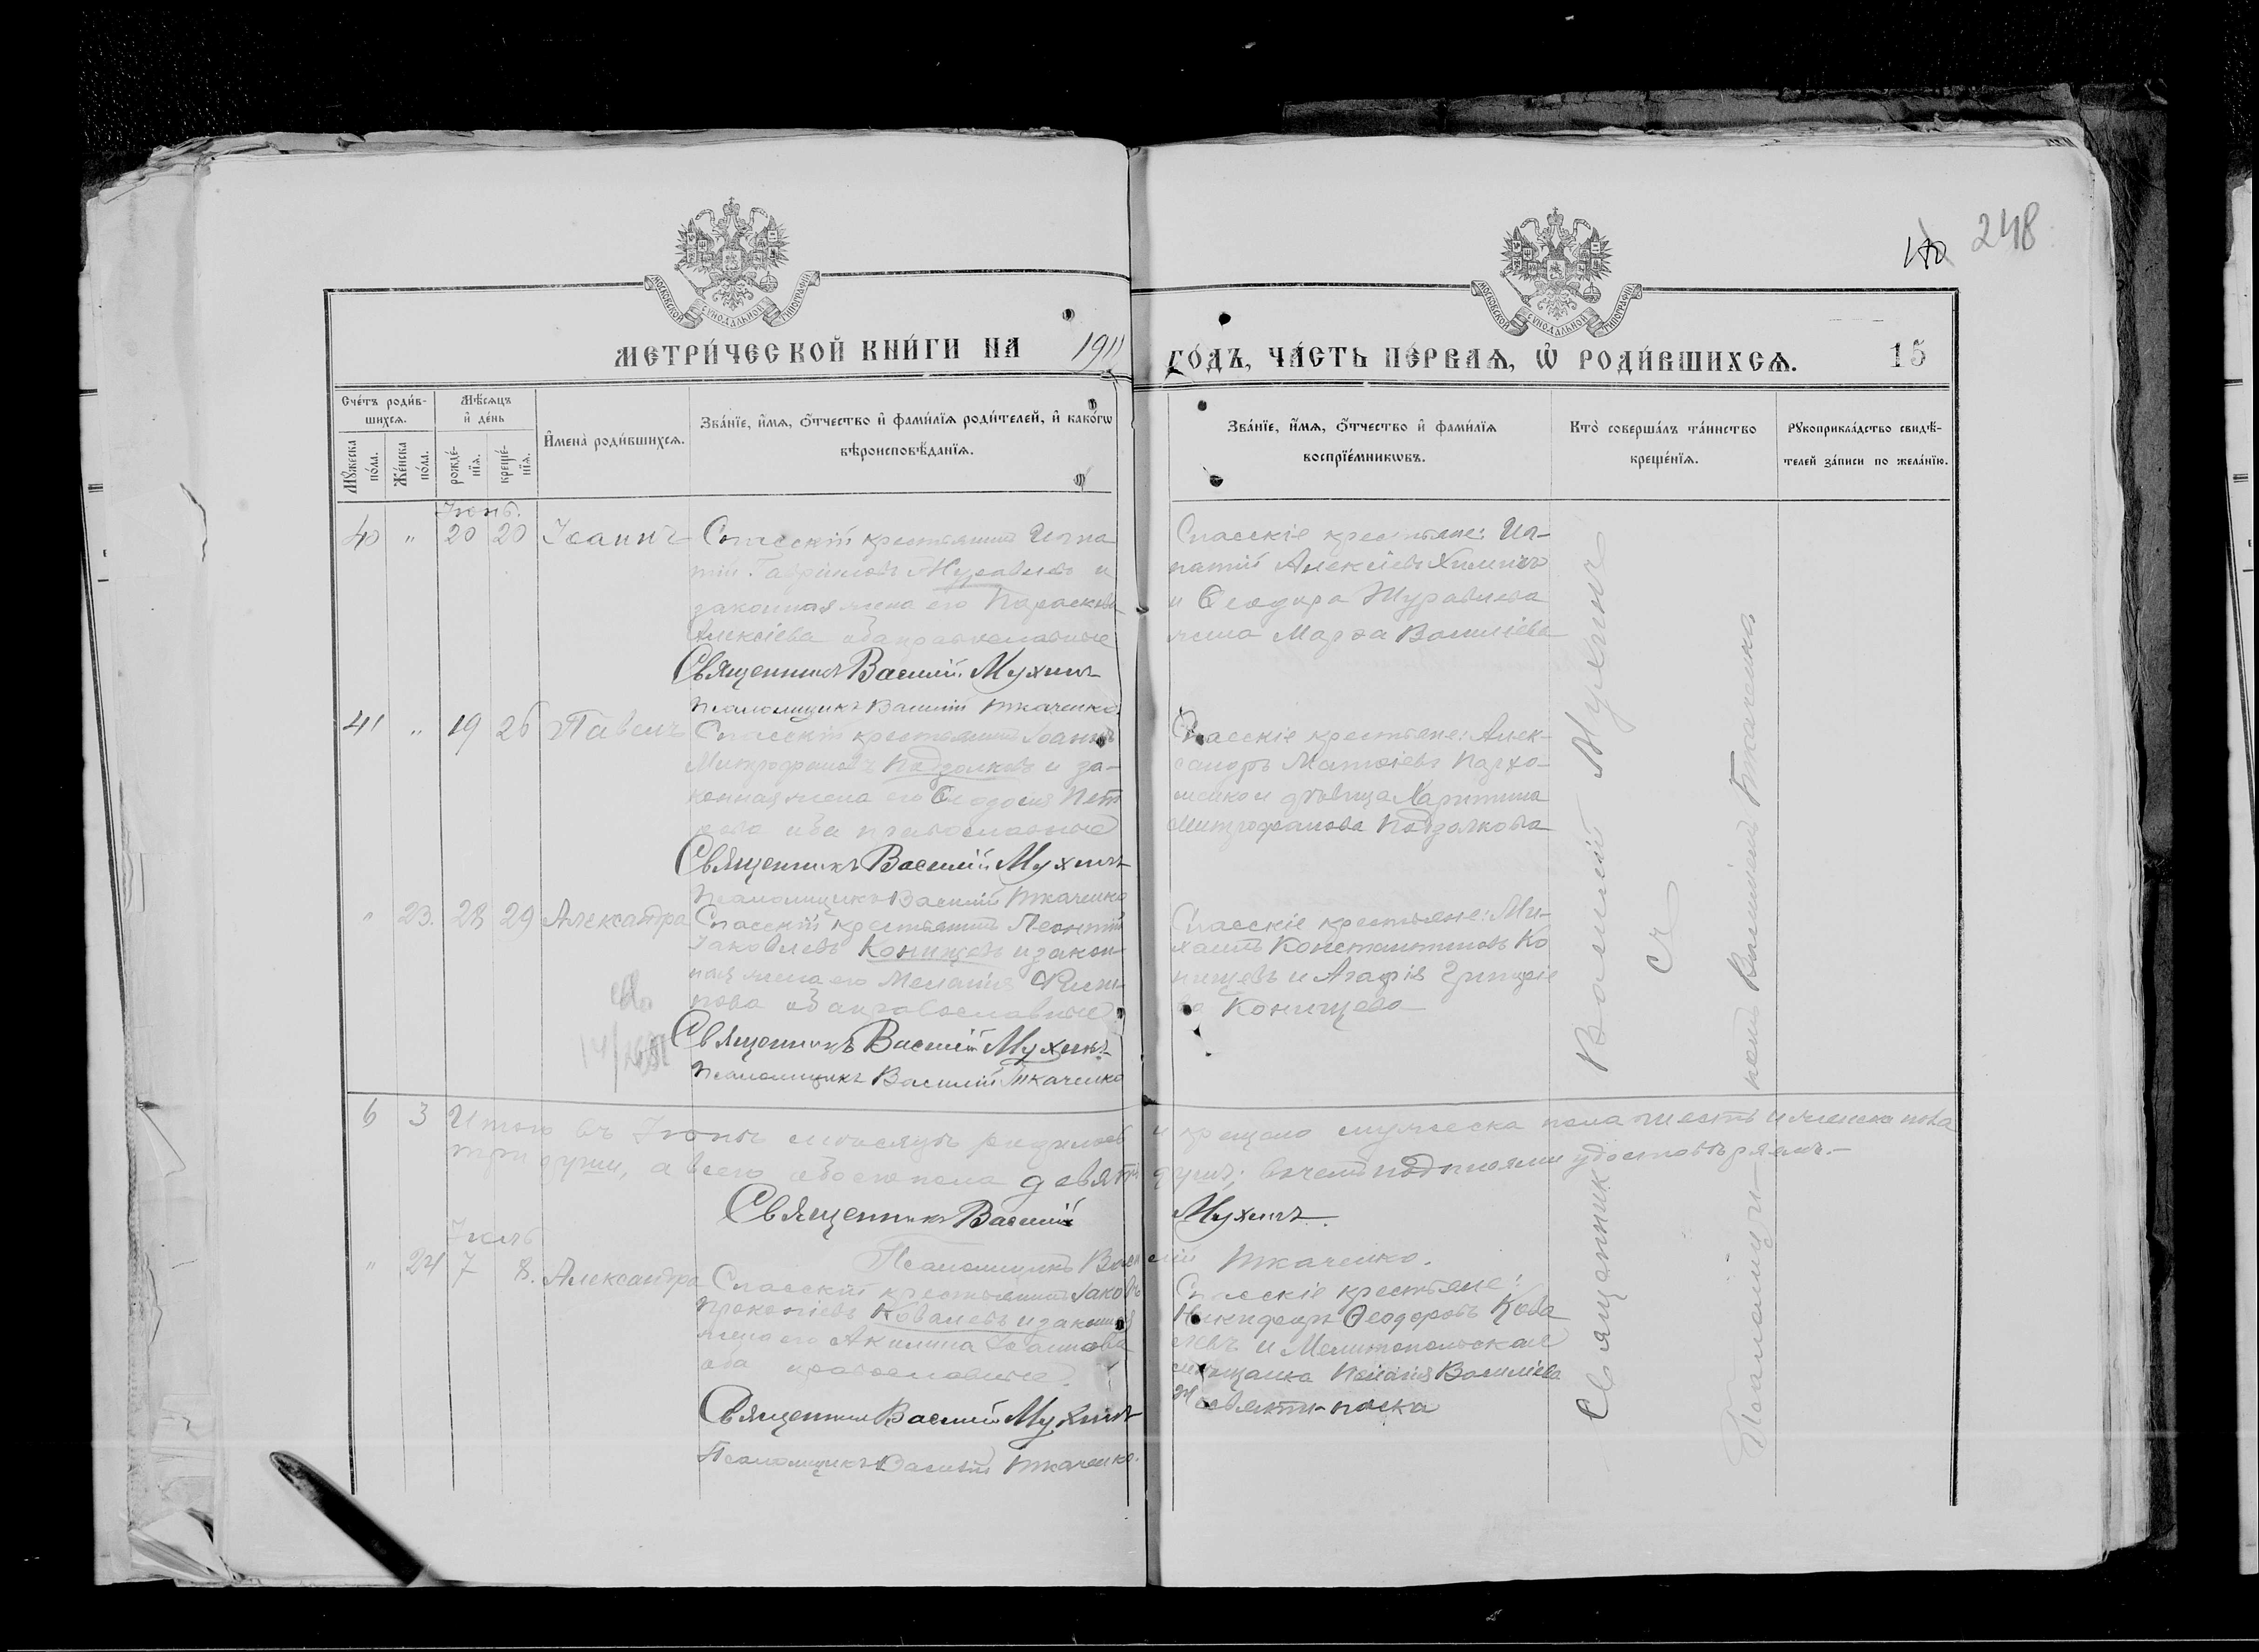 170 248
МОСКОВСКОЙ СѴНОДАЛЬНОЙ ТИПОГРАФІИ
МОСКОВСКОЙ СѴНОДАЛЬНОЙ ТИПОГРАФІИ
МЕТРИ́ЧЕСКОЙ КНИ́ГИ НА 1911
ГО́ДЪ, ЧА́СТЬ ПЕ́РВАѦ, Ѡ҆ РОДИ́ВШИХСѦ. 15
Сче́тъ роди́в-
шихсѧ.
Мꙋ́жеска
по́ла.
Же́нска
по́ла.
Мѣ́сѧцъ
и҆ де́нь
рожде́-
нїѧ.
креще́-
нїѧ.
И҆мена̀ роди́вшихсѧ.
Зва́нїе, и҆́мѧ, ѻ҆́тчество и҆ фами́лїѧ роди́телей, и҆ како́гѡ
вѣроисповѣ́данїѧ.
Зва́нїе, и҆́мѧ, ѻ҆́тчество и҆ фами́лїѧ
воспрїе́мникѡвъ.
Кто̀ соверша́лъ та́инство
креще́нїѧ.
Рꙋкоприкла́дство свидѣ́-
телей за́писи по жела́нїю.
Іюнь.
40 " 20 20 Іоаннъ Спасскій крестьянинъ Игна
тій Гавриловъ Журавлевъ и
законная жена его Параскева
Алексіева оба православные
Священникъ Василій Мухинъ
Псаломщикъ Василій Ткаченко.
Спасскіе крестьяне: Иг-
натій Алексіевъ
и Ѳеодора Журавлева
жена Марѳа Василіева
41 " 19 26 Павелъ Спасскій крестьянинъ Іоаннъ
Митрофановъ Подзолковъ и за-
конная жена его Ѳеодосія Пет
рова оба православные
Священникъ Василій Мухинъ
Псаломщикъ Василій Ткаченко
Спасскіе крестьяне: Алек-
сандръ Матѳіевъ Пархо-
менко и дѣвица Харитина
Митрофанова Подзолкова
" 23. 28 29 Александра Спасскій крестьянинъ Леонтій
Іаковлевъ Конищевъ и закон-
ная жена его Меланія Филип-
пова оба православные
Священникъ Василій Мухинъ
Псаломщикъ Василій Ткаченко
Спасскіе крестьяне: Ми-
хаилъ Константиновъ Ко
нищевъ и Агафія Григоріе
ва Конищева
6 3 Итого въ Іюнѣ мѣсяцѣ родилось и крещено мужеска пола шесть и женска пола
три души, а всего обоего пола девять душъ; въ чемъ подписями удостовѣряемъ.-
Священникъ Василій Мухинъ.
Псаломщикъ Василій Ткаченко.
Іюль
" 24 7 8. Александра Спасскій крестьянинъ Іаковъ
Прокопіевъ Ковалевъ и законная
жена его Акилина Іоаннова
оба православные.
Священникъ Василій Мухинъ
Псаломщикъ Василій Ткаченко.
Спасскіе крестьяне:
Никифоръ Ѳеодоровъ Кова
левъ и Мелитопольская
мѣщанка Василіева
Священникъ Василій Мухинъ
съ
Псаломщи-
комъ Василіемъ Ткаченко